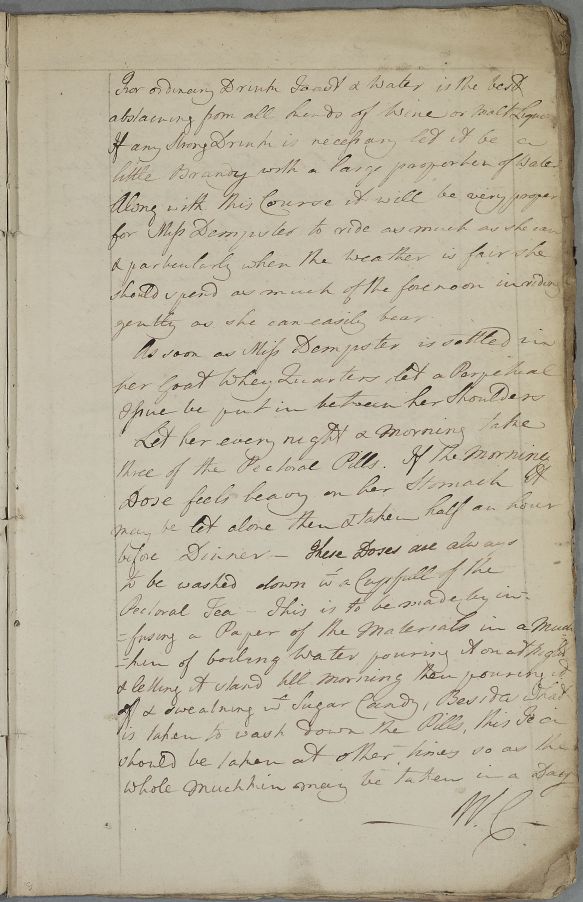 For ordinary Drink Toast & Water is the best
abstaining from all kinds of Wine or Malt Liquor
If any strong Drink is necessary let it be a
little Brandy with a large proportion of Water
Along with this Course it will be very proper
for Miss Dempster to ride as much as she can
& particularly when the weather is fair she
should spend as much of the forenoon in riding
gently as she can easily bear.
As soon as Miss Dempster is settled in
her Goat Whey Quarters let a Perpetual
Issue be put in between her Shoulders
Let her every night & morning take
three of the Pectoral Pills. If the Morning
Dose feels heavy on her Stomach it
may be let alone then & taken half an hour
before Dinner — These Doses are always
to be washed down wt a Cupfull of the
Pectoral Tea — This is to be made by in-
=fusing a Paper of the Materials in a Much-
=kin of boiling Water pouring it on at Night
& letting it stand till morning then pouring it
off & sweatning wt Sugar Candy, Besides what
is taken to wash down the Pills, this Tea
should be taken at other times so as the
whole Muchkin may be taken in a Day
W. C.